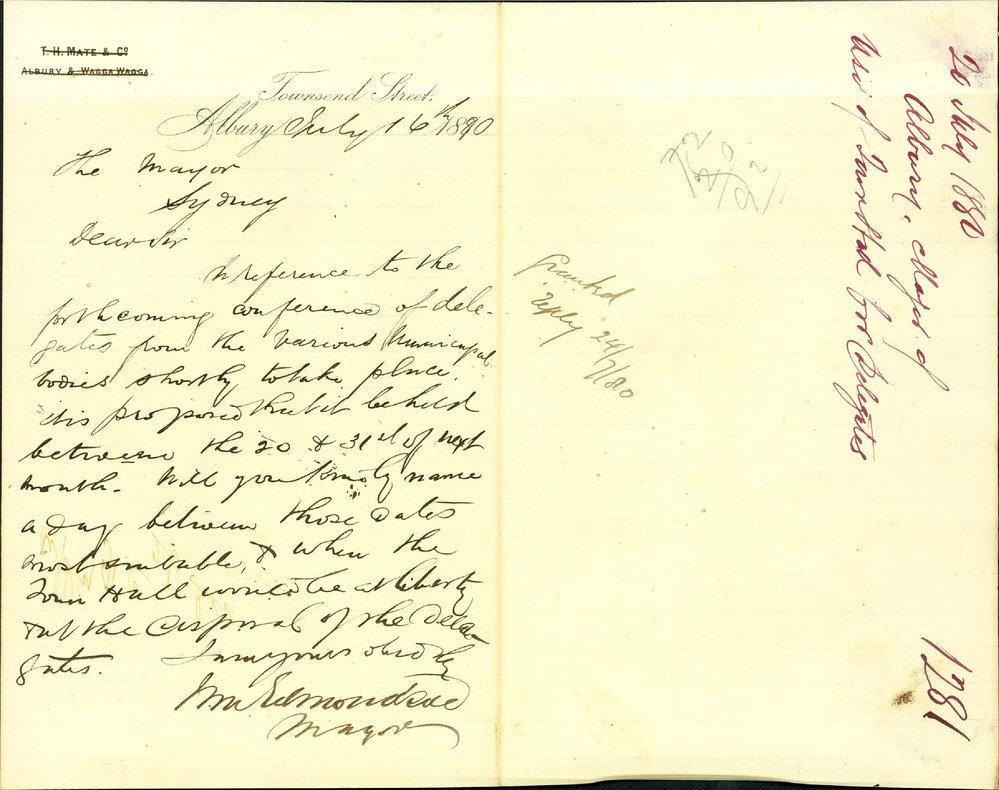 T. H. MATE & Co
ALBURY & WAGGA WAGGA
Townsend Street.
Albury July 16th 1880
The Mayor
Sydney
Dear Sir
In reference to the
forthcoming conference of dele-
gates from the various Municipal
bodies shortly to take place.
it is proposed that it be held
between the 20 & 31st of next
month. Will you kindly name
a day between those dates
most suitable, & when the
Town Hall would be at liberty
& at the disposal of the Dele-
gates. I am yours obedtly
Wm Edmondson
Mayor
Granted
reply 24/7/80
20 July 1880
Albury, Mayor of
Use of Town Hall for Delegates
1281